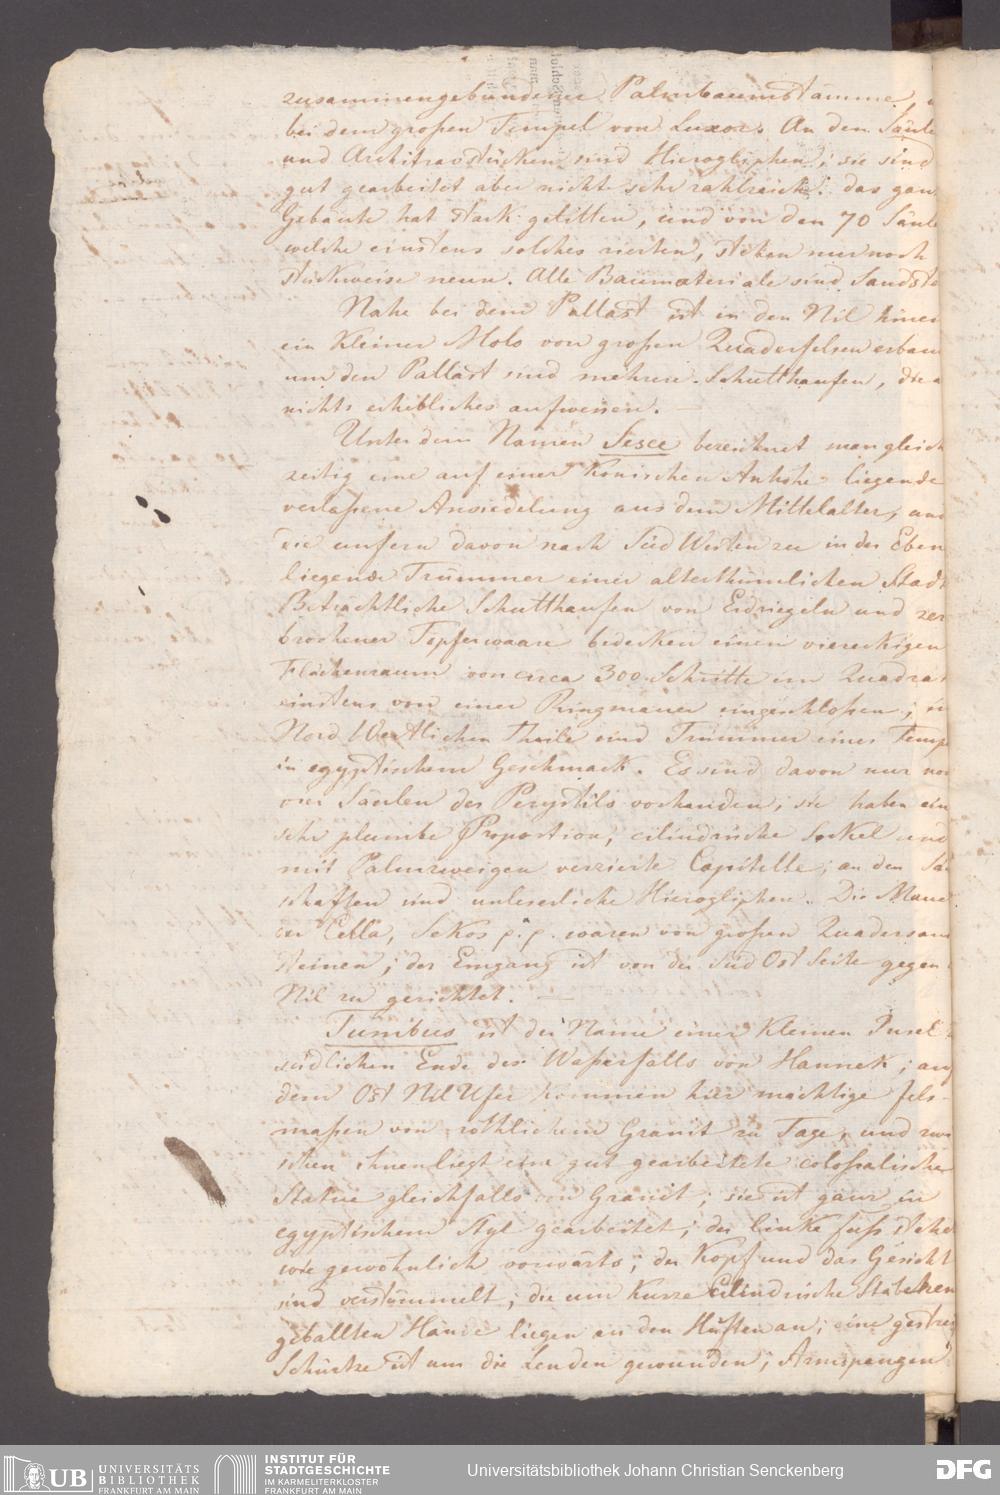 zusammengebundener Palmbaumstämme,
bei dem großen Tempel von Luxor. An den Säule
und Architravstücken sind Hierogliphen; sie sind
gut gearbeitet aber nicht sehr zahlreich. das gan
Gebäude hat stark gelitten, und von den 70 Säule
welche einstens solches zierten, stehen nur noch
stückweise neun. Alle Baumateriale sind Sandste
Nahe bei dem Pallast ist in den Nil hinein
ein Kleiner Molo von großen Quaderfelsen erbau
um den Pallast sind mehrere Schutthaufen, die a
nichts erhebliches aufweisen. —
Unter dem Namen Sesce bezeichnet man gleich
zeitig eine auf einer Konischen Anhöhe liegende
verlaßene Ansiedelung aus dem Mittelalter, und
die unfern davon nach Süd Westen zu in der Eben
liegende Trümmer einer alterthümlichen Stadt
Beträchtliche Schutthaufen von Erdziegeln und zer
brochener Topferwaare bedecken einen viereckigen
Flächenraum von circa 300 Schritte im Quadrat
einstens von einer Ringmauer eingeschloßen;
Nord Westlichen Theile sind Trümmer eines Temp
in egyptischem Geschmack. Es sind davon nur no
drei Säulen des Perystils vorhanden; sie haben ein
sehr plumbe Proportion, cilindrische Sokel und
mit Palmzweigen verzierte Capitelle; an den Sä
schaften sind unleserliche Hierogliphen. Die Maue
der Cella, Sekos p.p. waren von großen Quadersand
steinen; der Eingang ist von der Süd Ost Seite gegen
Nil zu gerichtet. —
Tumbus ist der Name einer Kleinen Insel
südlichen Ende des Waßerfalls von Hannek; auf
dem Ost Nil Ufer kommen hier mächtige fels-
maßen von röthlichem Granit zu Tage, und zwi
schen ihnen liegt eine gut gearbeitete coloßalische
Statue gleichfalls von Granit; sie ist ganz in
egyptischem Styl gearbeitet; der linke fuß stehet
wie gewohnlich vorwärts; der Kopf und das Gesicht
sind verstümmelt; die um Kurze Cilindrische Stäbchen
geballten Hände liegen an den Hüften an; eine gestrei
Schürtze ist um die Lenden gewunden; Armspangen
UB UNIVERSITÄTS
BIBLIOTHEK
FRANKFURT AM MAIN
INSTITUT FÜR
STADTGESCHICHTE
IM KARMELITERKLOSTER
FRANKFURT AM MAIN
Universitätsbibliothek Johann Christian Senckenberg
DFG